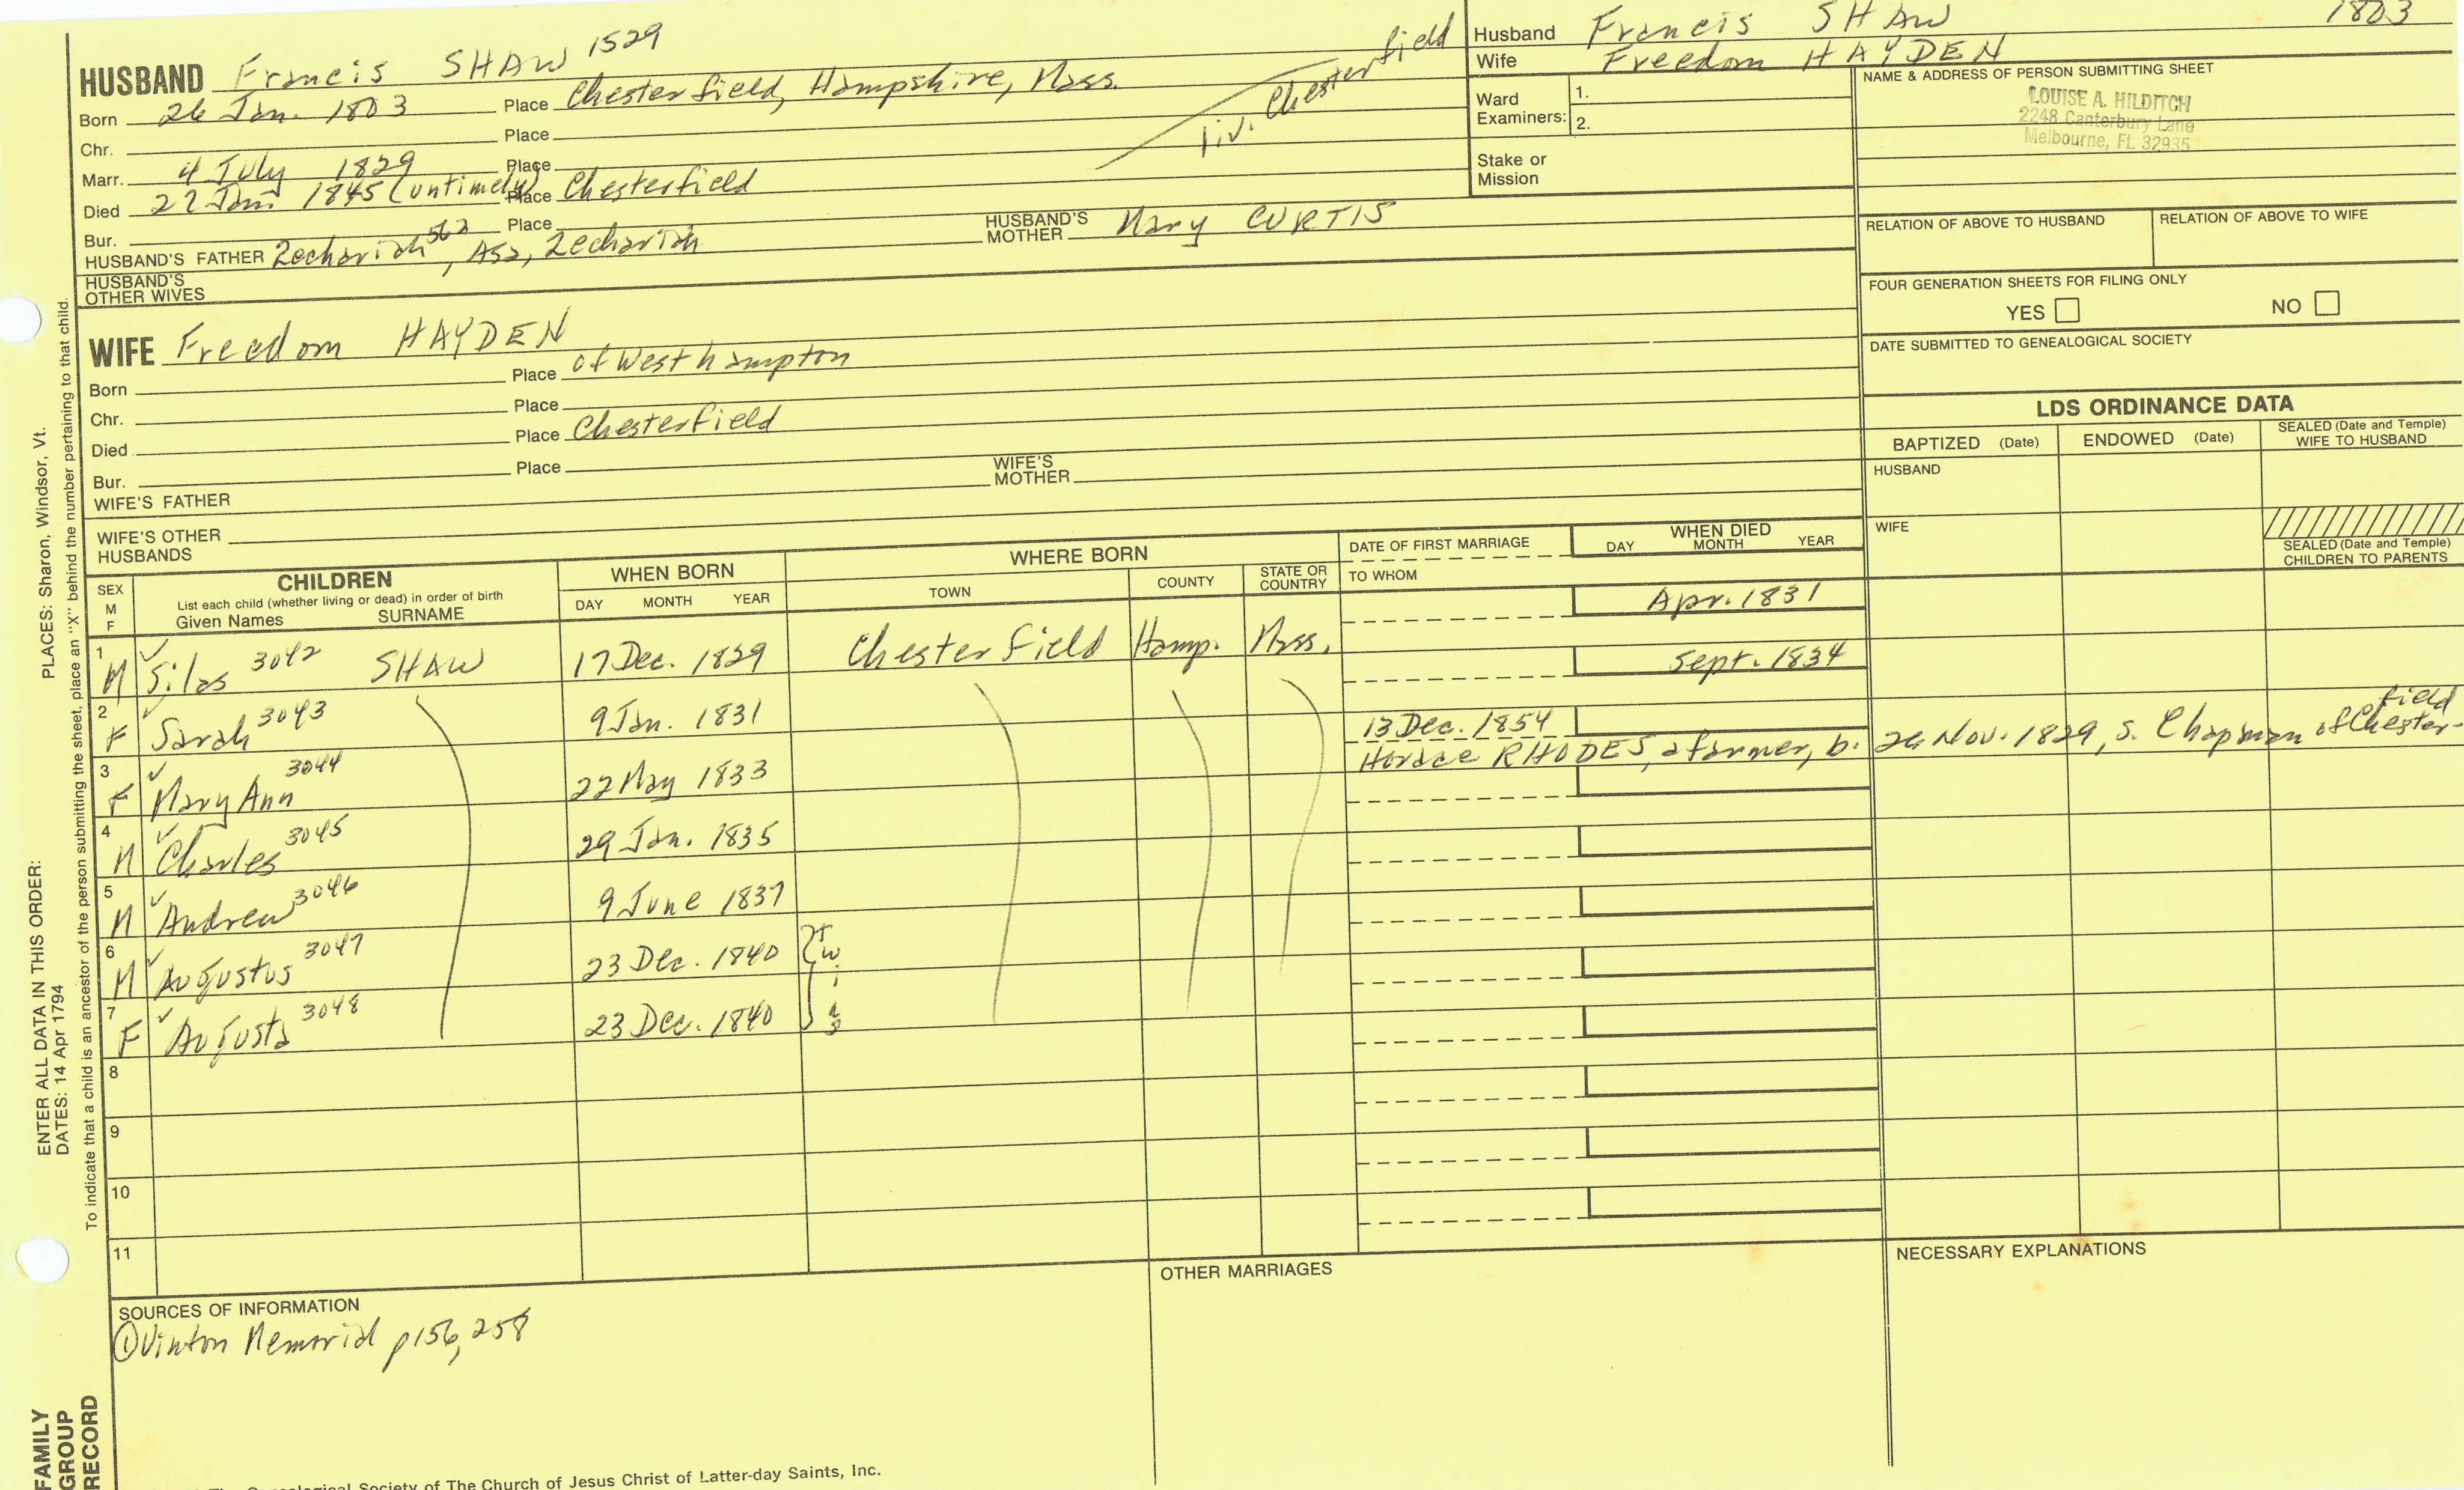 HUSBAND Francis SHAW 1529
Born 26 Jan. 1803 Place Chesterfield, Hampshire, Mass.
Chr. Place
liv. Chesterfield
Marr. 4 July 1829 Place
Died 22 Jan. 1845 (untimely) Place Chesterfield
Bur. Place
HUSBAND'S FATHER Zechariah 562, Asa, Zechariah HUSBAND'S MOTHER Mary CURTIS
HUSBAND'S
OTHER WIVES
Husband Francis SHAW 1803
Wife Freedom HAYDEN
Ward
Examiners:
1.
2.
Stake or
Mission
NAME & ADDRESS OF PERSON SUBMITTING SHEET
LOUISE A. HILDITCH
2248 Canterbury Lane
Melbourne, FL 32935
RELATION OF ABOVE TO HUSBAND RELATION OF ABOVE TO WIFE
FOUR GENERATION SHEETS FOR FILING ONLY
YES NO
DATE SUBMITTED TO GENEALOGICAL SOCIETY
WIFE Freedom HAYDEN
Born Place of Westhampton
Chr. Place
Died Place Chesterfield
Bur. Place
WIFE'S FATHER WIFE'S MOTHER
WIFE'S OTHER
HUSBANDS
LDS ORDINANCE DATA
BAPTIZED (Date) ENDOWED (Date) SEALED (Date and Temple) WIFE TO HUSBAND
HUSBAND
WIFE
SEALED (Date and Temple)
CHILDREN TO PARENTS
SEX
M
F
CHILDREN
List each child (whether living or dead) in order of birth
Given Names SURNAME
WHEN BORN
DAY MONTH YEAR
WHERE BORN
TOWN COUNTY STATE OR COUNTRY
DATE OF FIRST MARRIAGE
TO WHOM
WHEN DIED
DAY MONTH YEAR
1 M Silas 3042 SHAW 17 Dec. 1829 Chesterfield Hamp. Mass. Apr. 1831
2 F Sarah 3043 9 Jan. 1831 Sept. 1834
3 F Mary Ann 3044 22 May 1833 13 Dec. 1854
Horace RHODES, a farmer, b. 24 Nov. 1829, s. Chapman of Chesterfield
4 M Charles 3045 29 Jan. 1835
5 M Andrew 3046 9 June 1837
6 M Augustus 3047 23 Dec. 1840 twins
7 F Augusta 3048 23 Dec. 1840
8
9
10
11
SOURCES OF INFORMATION
① Vinton Memorial p156, 258
OTHER MARRIAGES
NECESSARY EXPLANATIONS
ENTER ALL DATA IN THIS ORDER:
DATES: 14 Apr 1794
PLACES: Sharon, Windsor, Vt.
To indicate that a child is an ancestor of the person submitting the sheet, place an "X" behind the number pertaining to that child.
FAMILY
GROUP
RECORD
Society of The Church of Jesus Christ of Latter-day Saints, Inc.